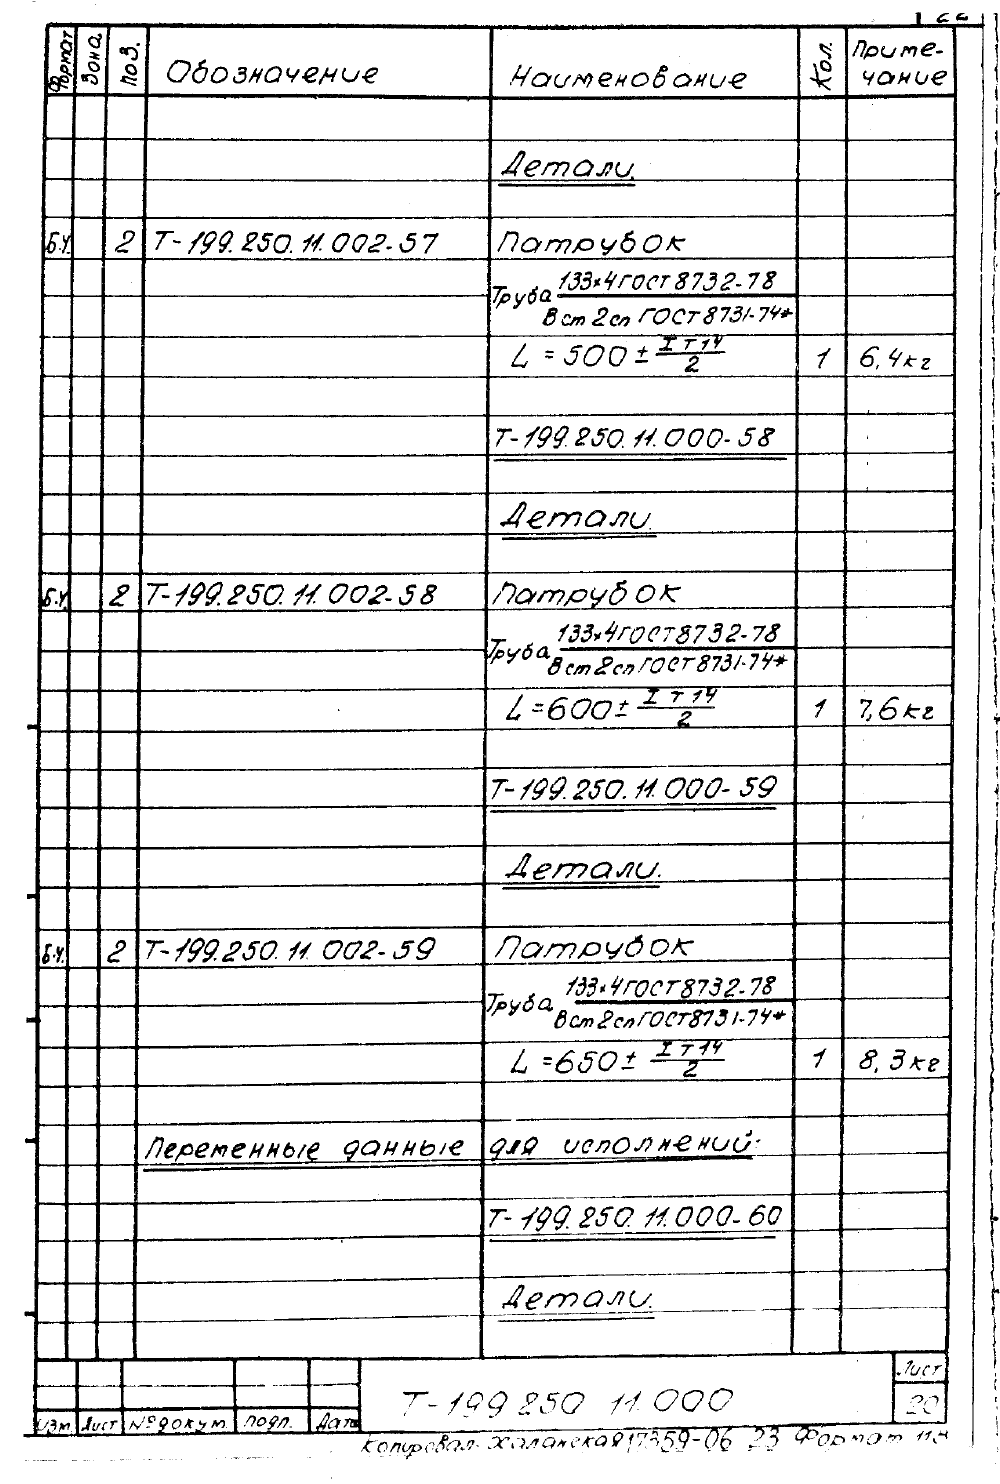 Формат Зона. Поз. Обозначение Наименование Кол. Приме-
чание
Детали.
Б.Ч. 2 Т-199.250.11.002-57 Патрубок
133×4 ГОСТ 8732-78
Труба
В ст 2сп ГОСТ 8731-74*
L = 500 ± IT14/2 1 6,4 кг
Т-199.250.11.000-58
Детали.
Б.Ч. 2 Т-199.250.11.002-58 Патрубок
133×4 ГОСТ 8732-78
Труба
В ст 2сп ГОСТ 8731-74*
L = 600 ± IT14/2 1 7,6 кг
Т-199.250.11.000-59
Детали.
Б.Ч. 2 Т-199.250.11.002-59 Патрубок
133×4 ГОСТ 8732-78
Труба
В ст 2сп ГОСТ 8731-74*
L = 650 ± IT14/2 1 8,3 кг
Переменные данные для исполнений:
Т-199.250.11.000-60
Детали.
Т-199 250 11.000
Лист
20
Изм Лист № докум. подп. Дата
Копировал: Халанская 17359-06 23 Формат 11